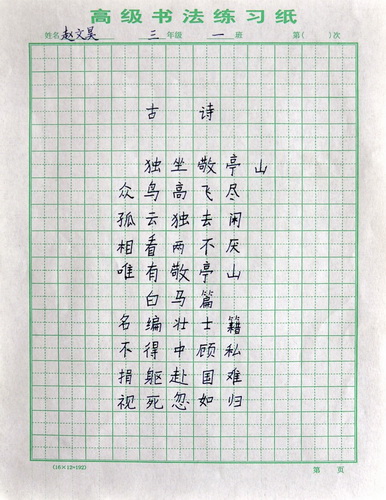 高级书法练习纸
姓名 赵文昊 三 年级 一 班 第( )次
古 诗
独坐敬亭山
众鸟高飞尽
孤云独去闲
相看两不厌
唯有敬亭山
白马篇
名编壮士籍
不得中顾私
捐躯赴国难
视死忽如归
(16×12=192) 第 页